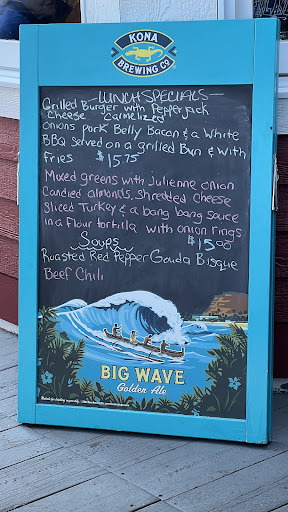 KONA
BREWING CO
LUNCH SPECIALS
Grilled Burger with Pepperjack
Cheese "Carmelized"
onions Pork Belly Bacon & a White
BBQ Served on a grilled Bun & with
Fries $15.75
Mixed greens with Julienne onion
Candied almonds, Shredded Cheese
Sliced Turkey & a bang bang Sauce
in a Flour tortilla with onion rings
$15.00
Soups
Roasted Red Pepper Gouda Bisque
Beef Chili
BIG WAVE
Golden Ale